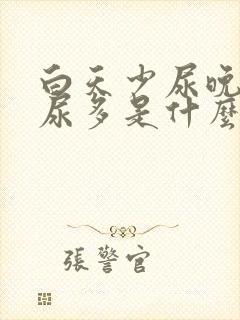 白天少尿晚
尿多是什麼
張警官